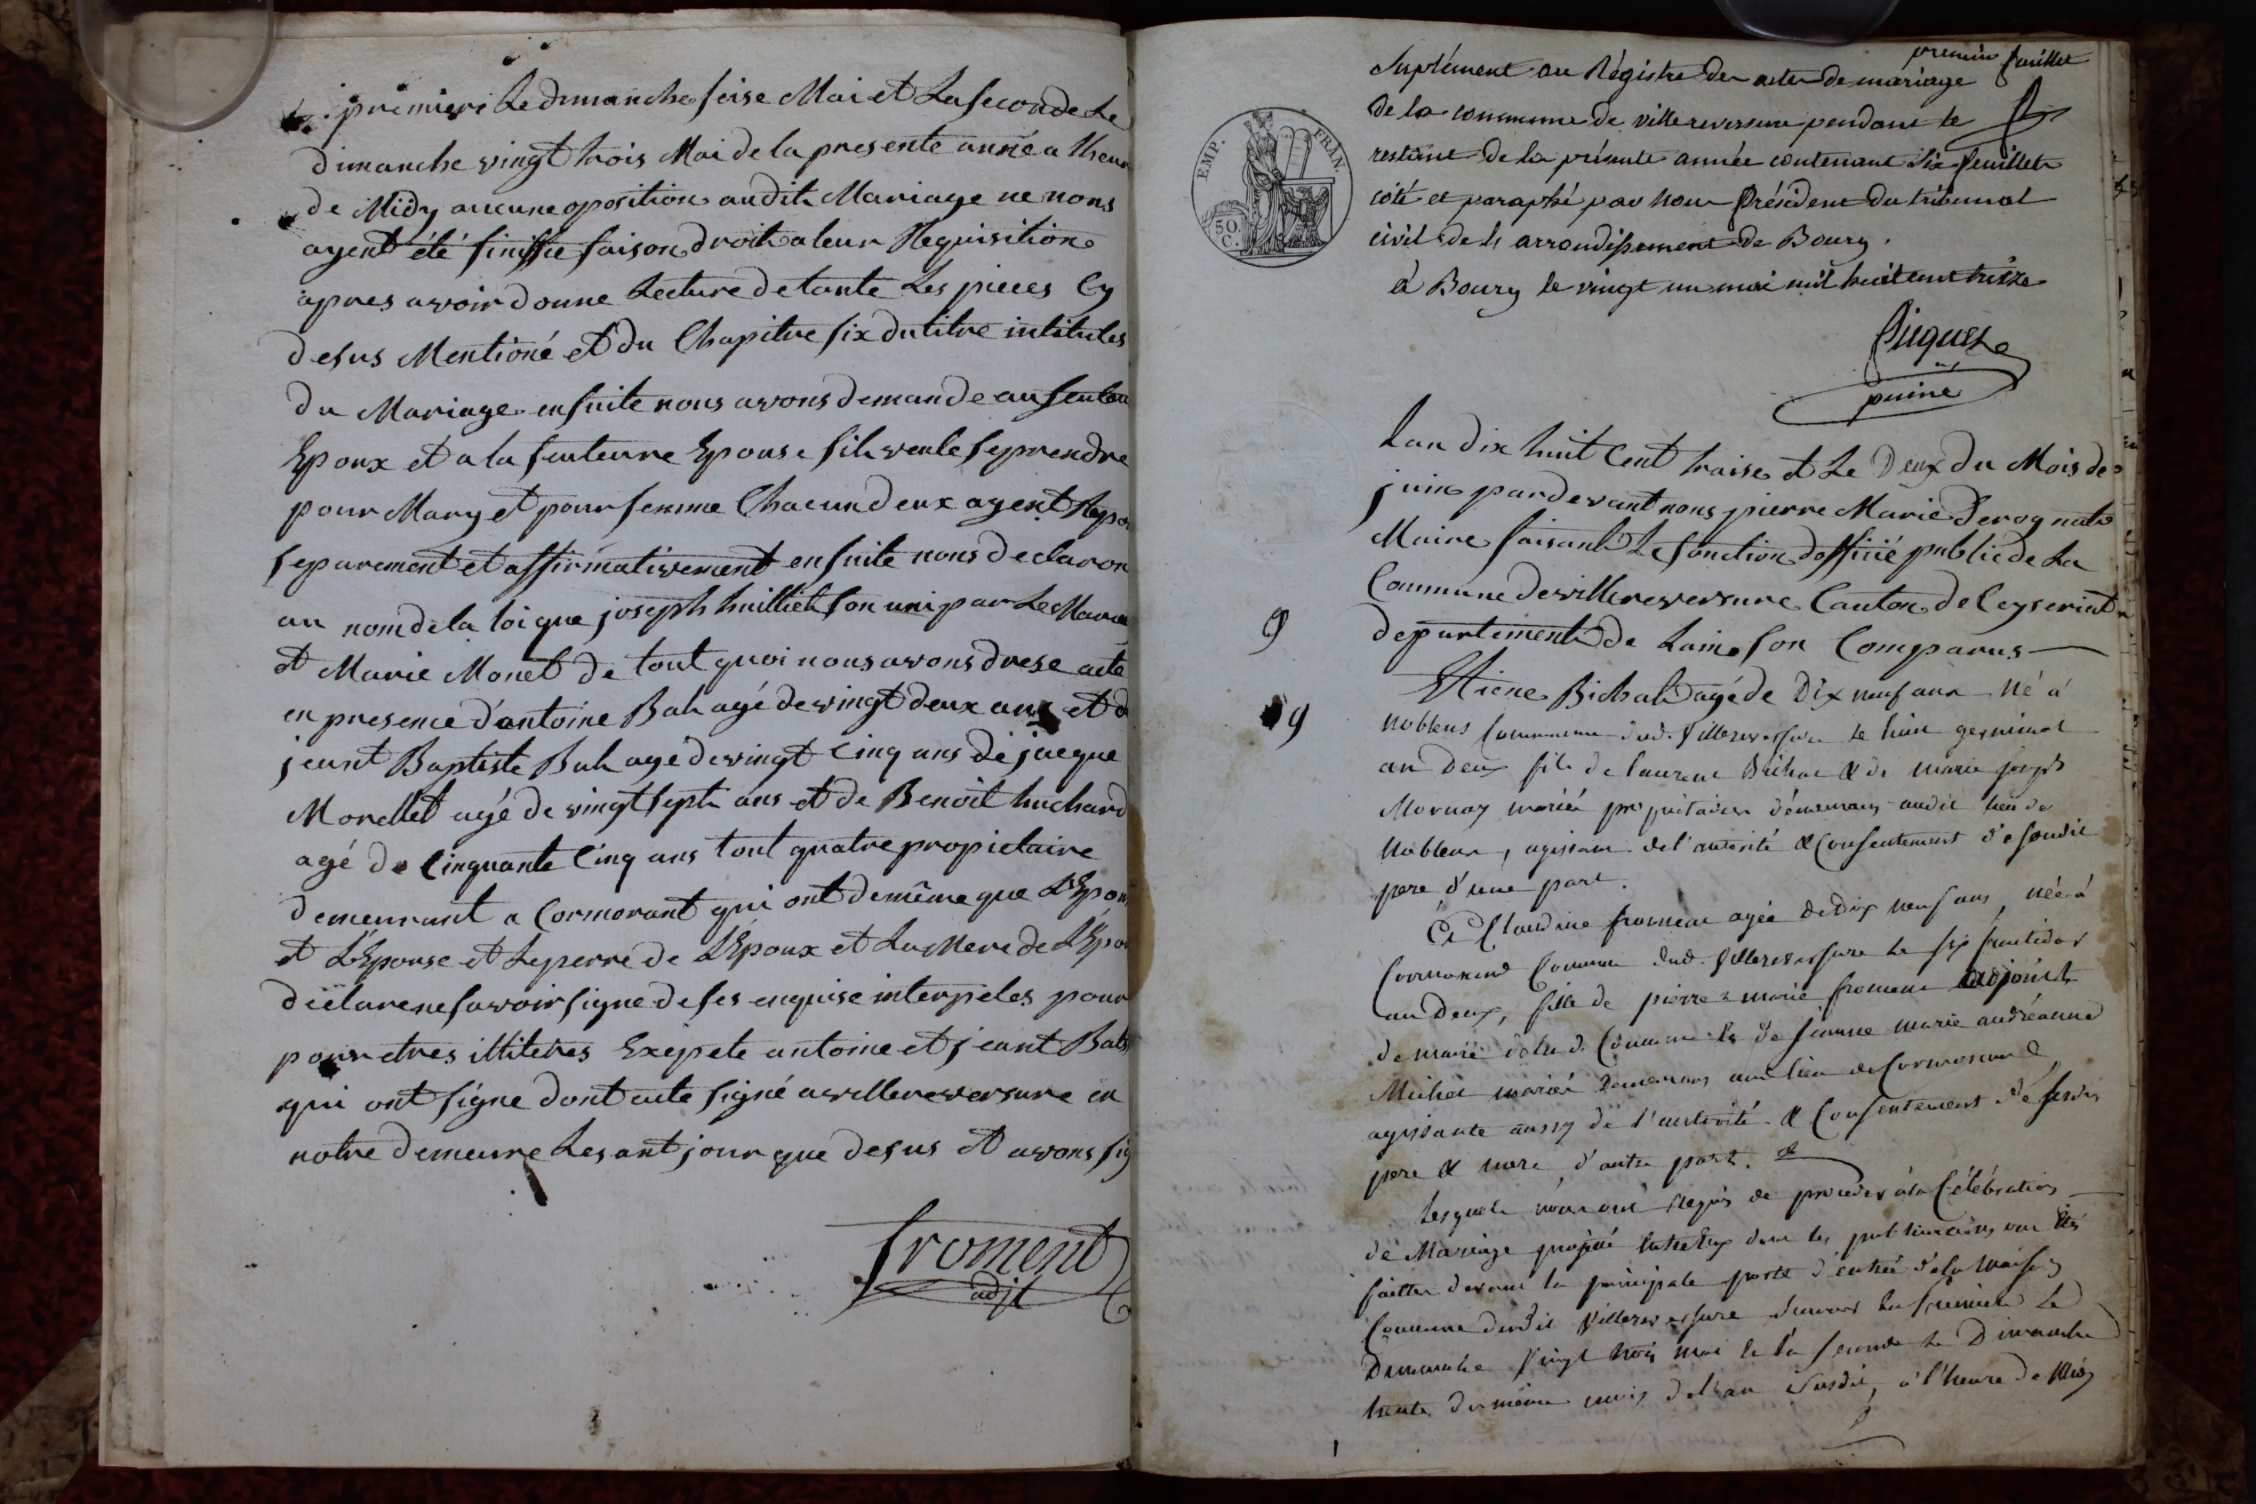 premiere Le dimanche seise Mai et La seconde Le
dimanche vingt trois Mai de la presente année a Lheur
de Midy aucune oposition audit Mariage ne nous
ayent été sinifie faison droit a leur Requisition
apres avoir donne Lecture de toute Les pieces Cy
desus Mentioné et du Chapitre six du titre intitules
du Mariage ensuite nous avons demande au
Epoux et a la Epouse sils veule se prendre
pour Mary et pour femme Chacun deux ayent Repon
separement et affirmativement ensuite nous declaron
au nom de la loi que joseph huilliet son uni par Le Maria
et Marie Monet de tout quoi nous avons drese acte
en presence d'antoine Bah agé de vingt deux ans et d
jeant Baptiste Bah agé de vingt Cinq ans de jacque
Morellet agé de vingt sept ans et de Benoit huchard
agé de Cinquante Cinq ans tout quatre propietaire
demeurant a Cormorant qui ont de même que L'Epou
et L'Epouse et Le perre de L'Epoux et La Mere de L'Epou
déclare ne savoir signe de ses enquise interpeles pour
pour etres illiteres Exepete antoine et jeant Bah
qui ont signe dont acte signé a villereversure en
notre demeure Les ant jour que desus et avons sig
froment
adjt
premier feuillet
Suplément au Régistre des actes de mariage
de la commune de villereversure pendant le
restant de la présente année contenant six feuillets
coté et paraphé par nous Président du tribunal
civil de l'arrondissement de Bourg.
à Bourg le vingt un mai mil huit cent treize
EMP. FRAN.
50 C.
puiné
Lan dix huit Cent traise et Le Deux du Mois de
juin par devant nous pierre Marie Perognat
Maire faisant Le fonction doffiié public de La
Commune de villereversure Canton de Ceyseriat
9
departement de Lain son Comparus
Etiene Bichat agé de Dix neuf ans né à
9
Noblens Commune dud. Villereversure le huit germinal
an Deux fils de laurent Bichat & de marie joseph
Mornay mariés propriétaires démeurans audit lieu de
Noblens, agissant de l'autorité & Consentement de sondit
pere d'une part.
Et Claudine froment agée de Dix neuf ans, née à
Cormorand Commune dud. Villereversure le six fructidor
an Deux, fille de pierre marie froment adjoint
de maire de lad. Commune & de jeanne marie andréanne
Michel mariés demeurans aud lieu de Cormorand
agissante aussy de l'autorité & Consentement de sesdits
pere & mere d'autre part.
Lesquels nous ont Requis de proceder à la Célébration
de Mariage projeté entre Eux dont les publications ont été
faittes devant la principale porte d'entrée de la Maison
Commune dudit Villereversure savoir la premiere Le
Dimanche Vingt trois mai & la seconde Le Dimanche
trente du même mois de l'an susdit, à l'heure de Midy